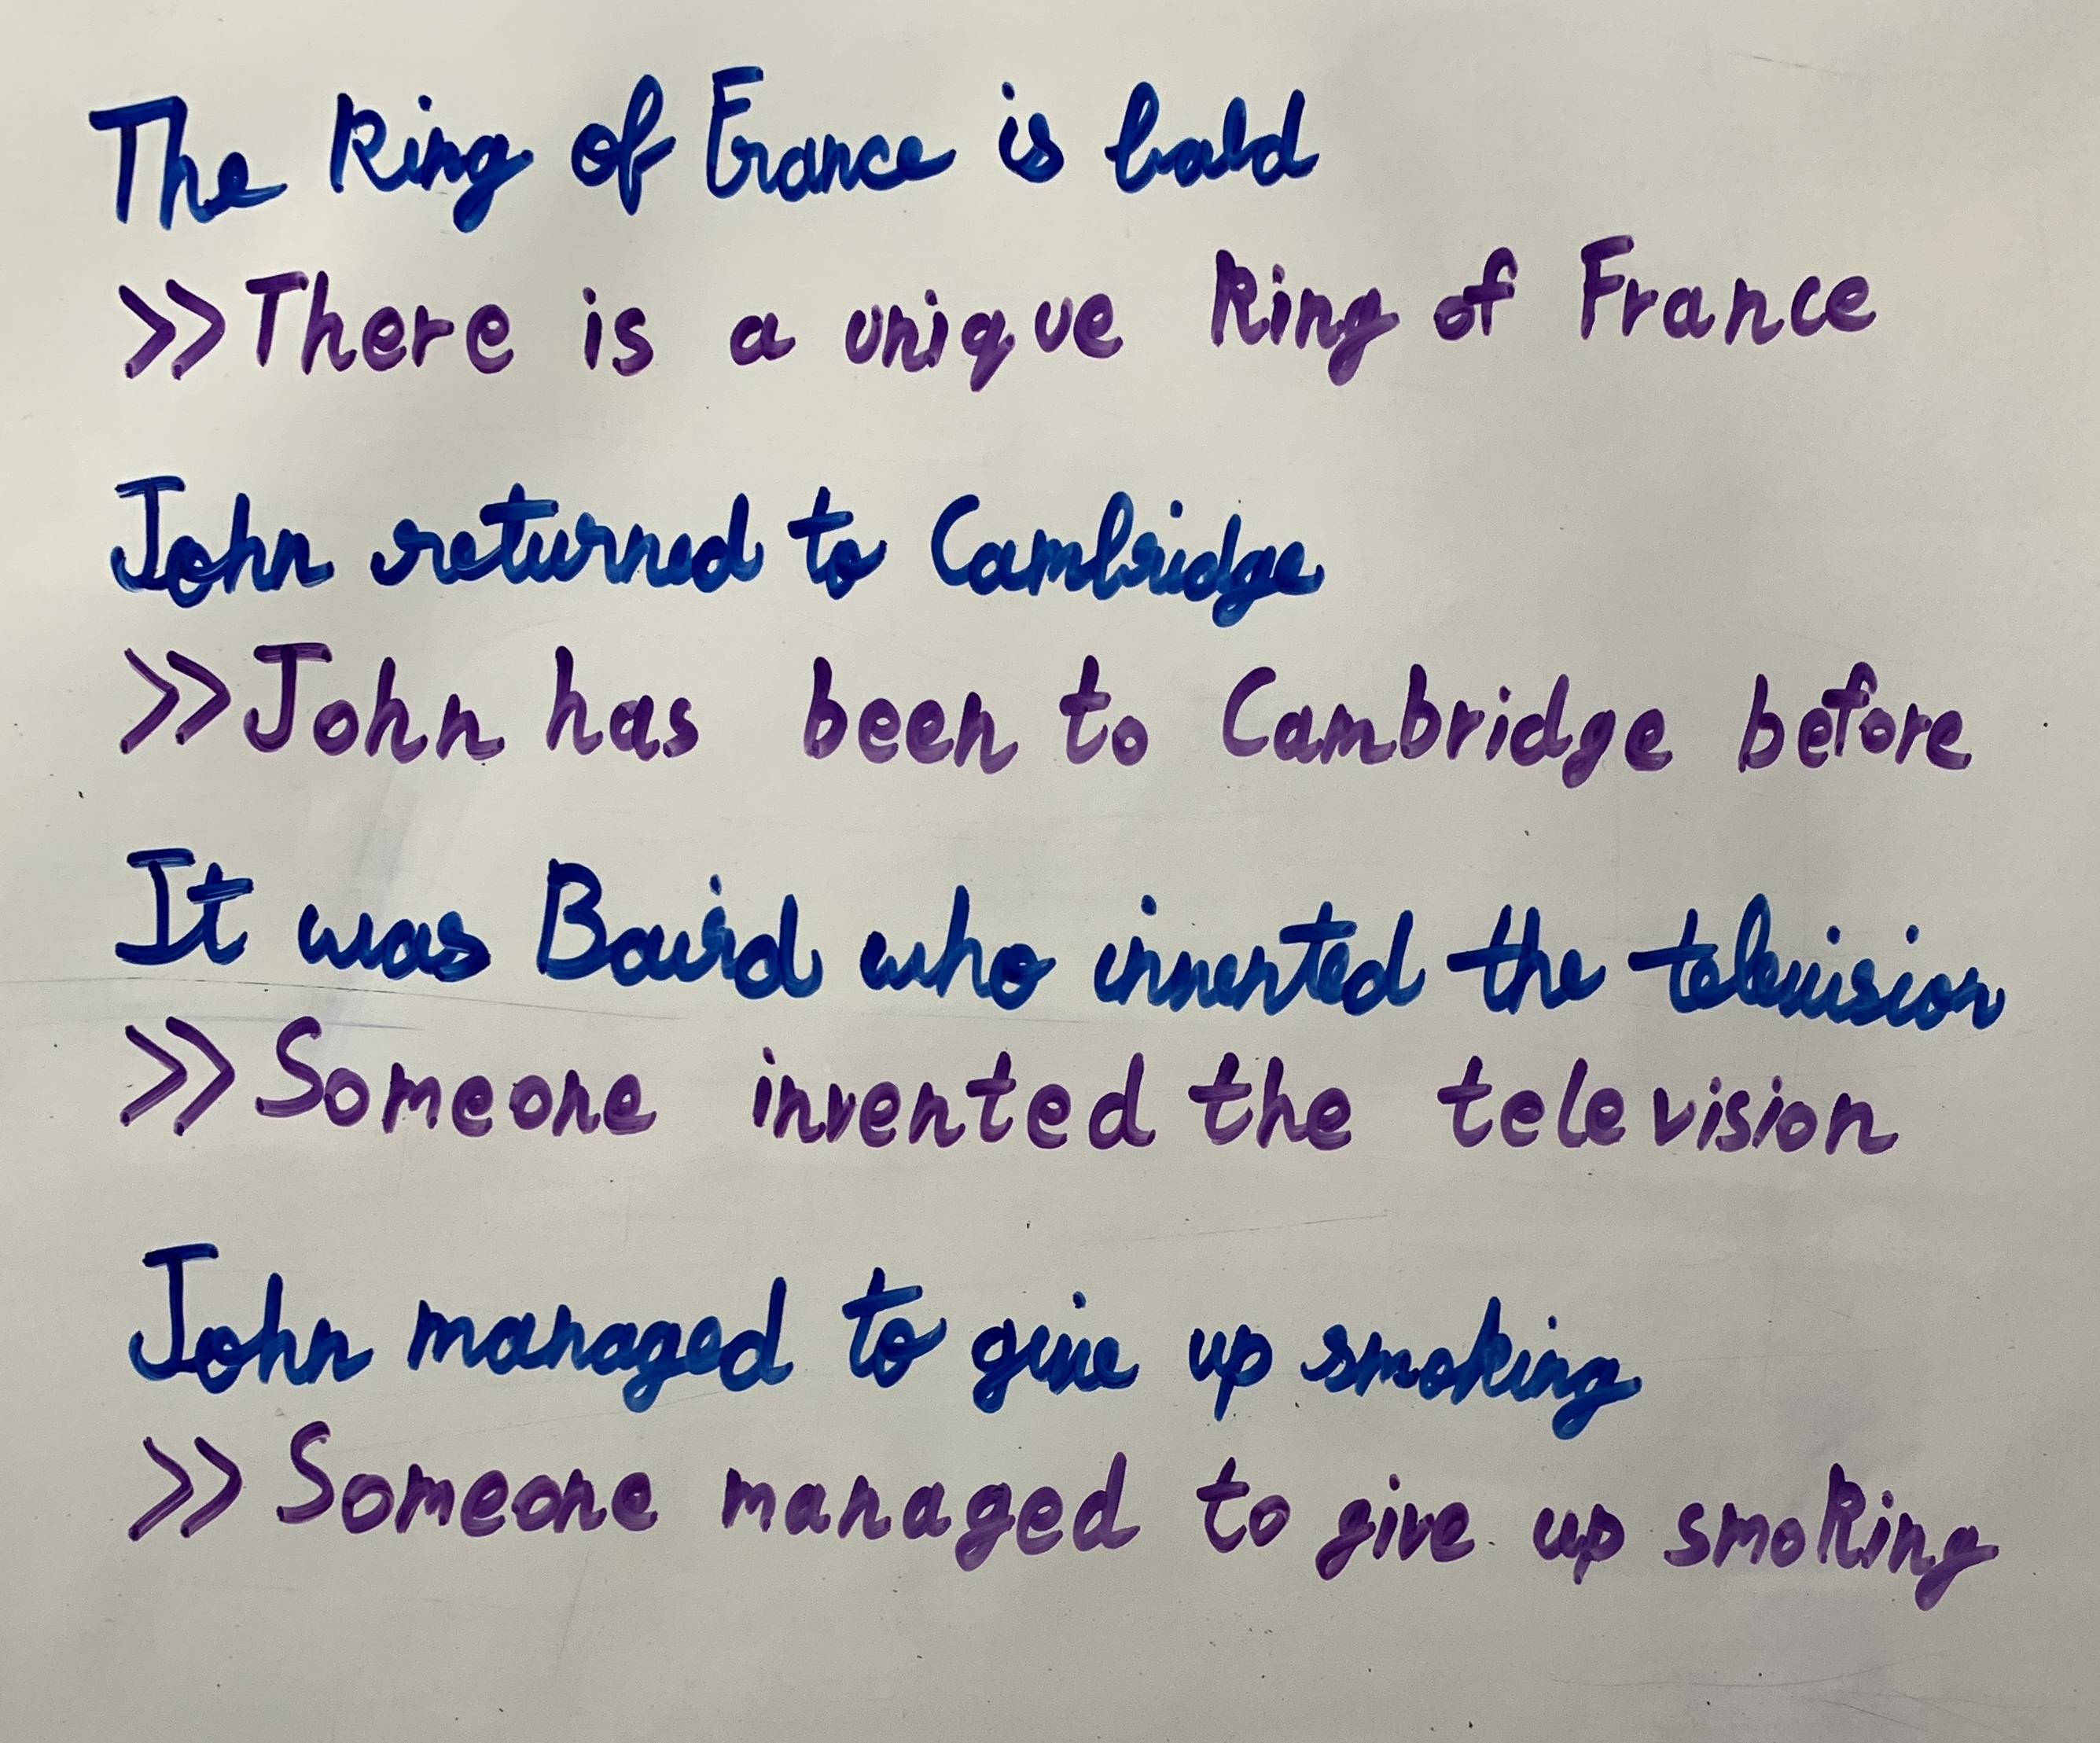 The King of France is bald
>>There is a unique King of France
John returned to Cambridge
>>John has been to Cambridge before
It was Baird who invented the television
>>Someone invented the television
John managed to give up smoking
>>Someone managed to give up smoking